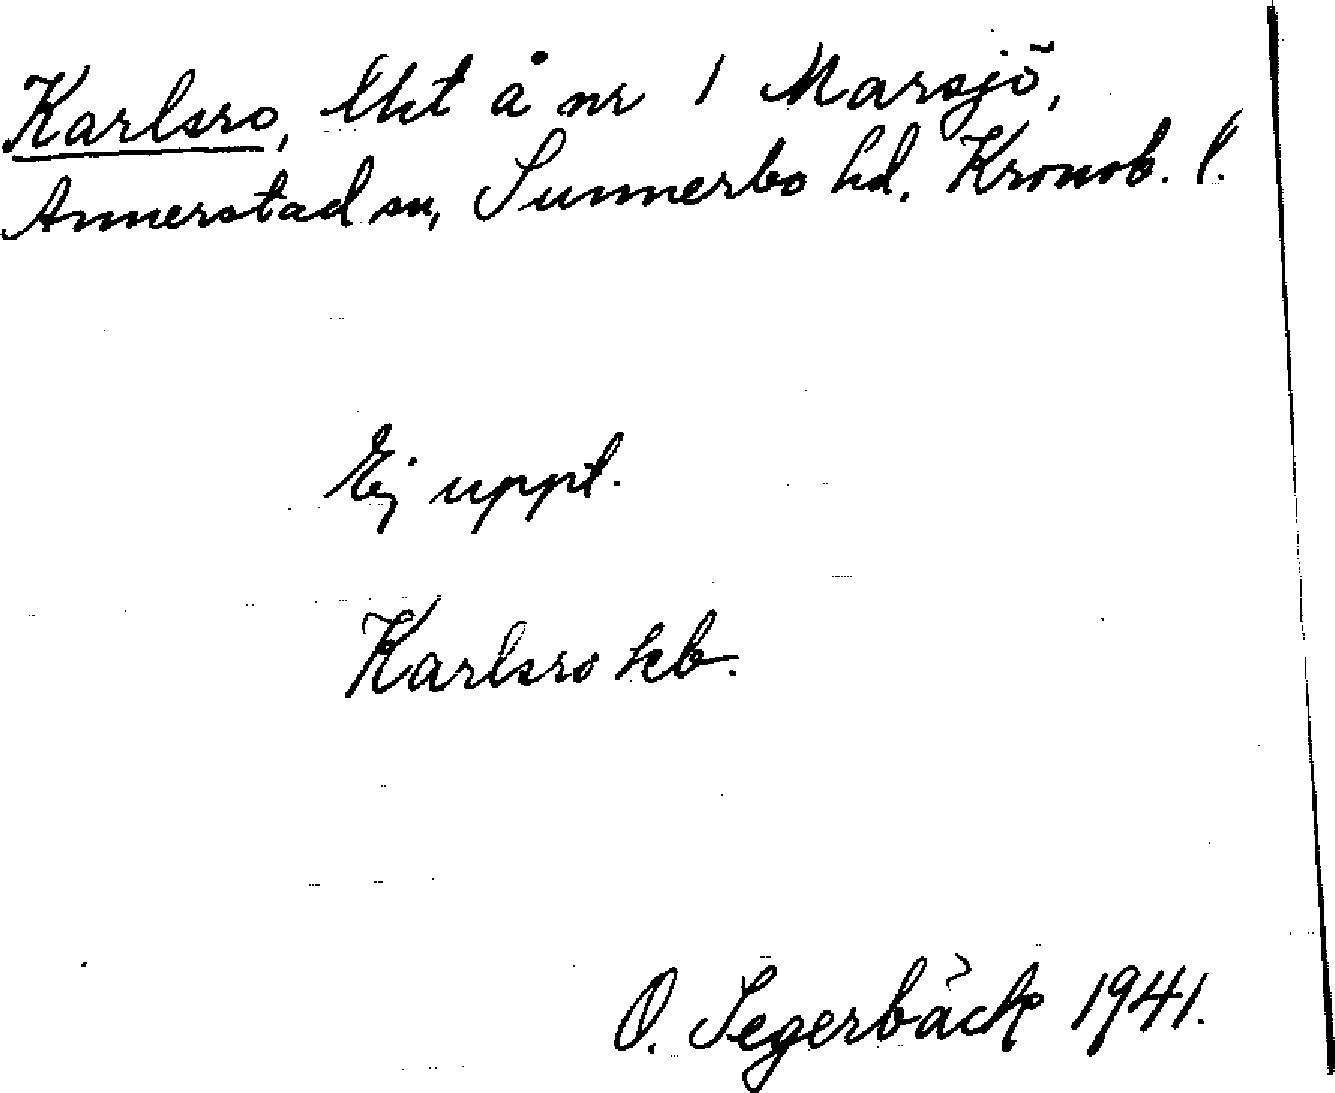 Karlsro, lht å nr 1 Marsjö,
Annerstad sn, Sunnerbo hd. Kronob. l.
Ej uppt.
Karlsro kb.
O. Segerbäck 1941.